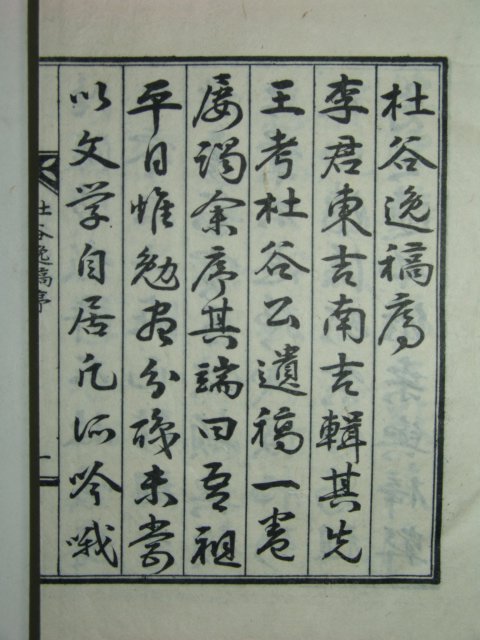 杜谷逸稿序
李君東吉南吉輯其先
王考杜谷公遺稿一卷
屢謁余序其端曰吾祖
平日惟勉盡分職未嘗
以文学自居凡所吟哦
杜谷逸稿序
一